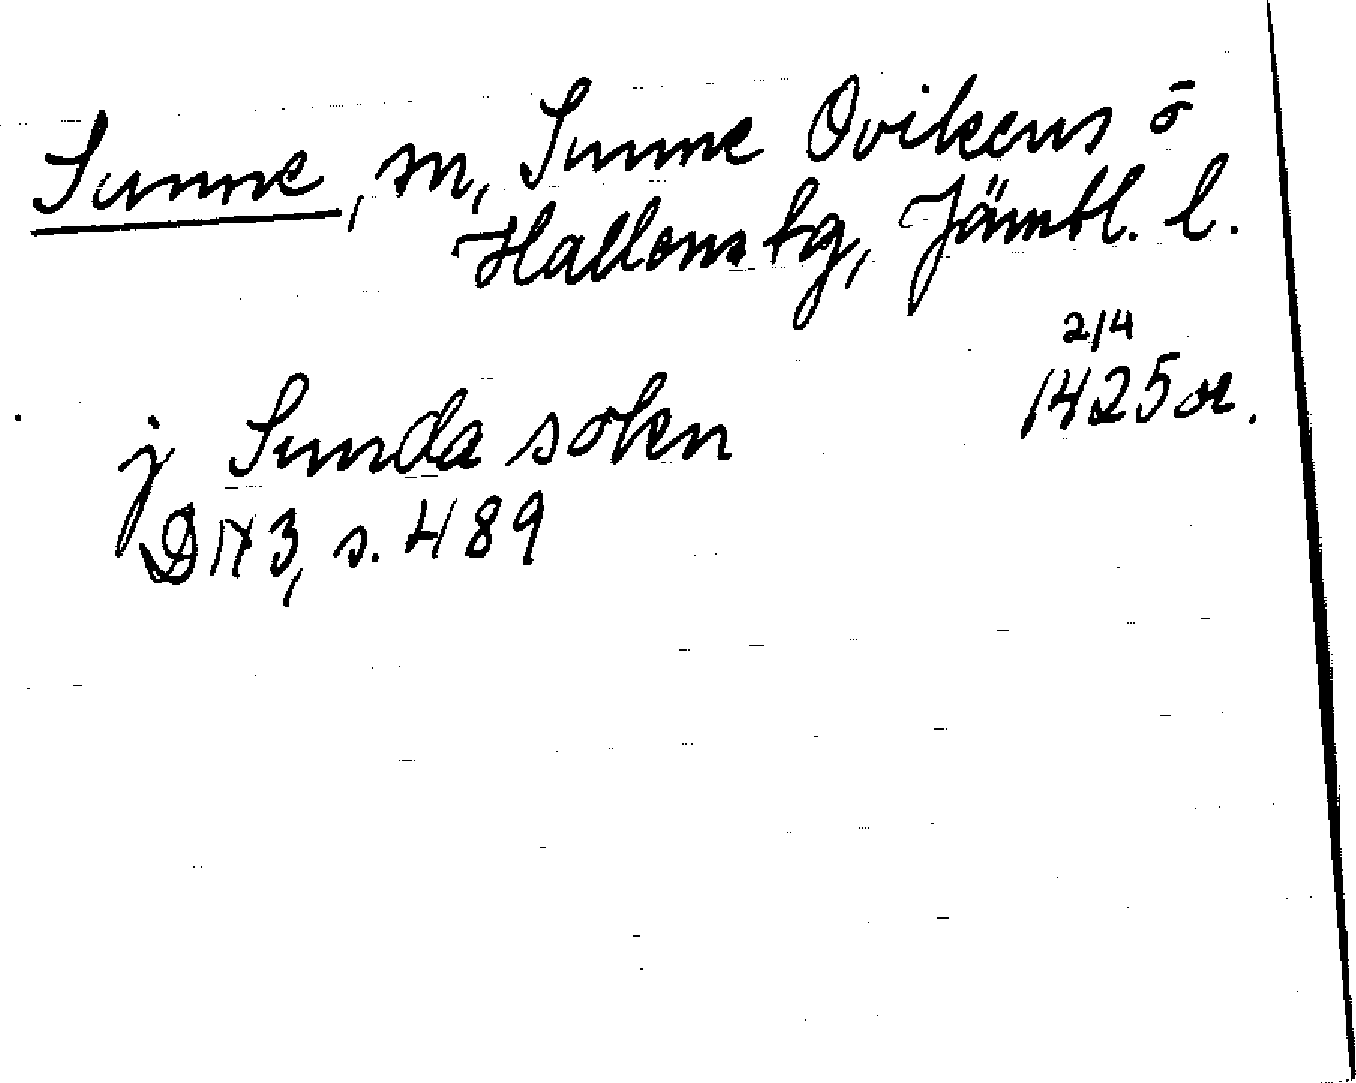 Sunne, sn, Sunne Ovikens ō
Hallens tg, Jämtl. l.
2/4
1425 or.
j Sunda sokn
DN 3, s. 489